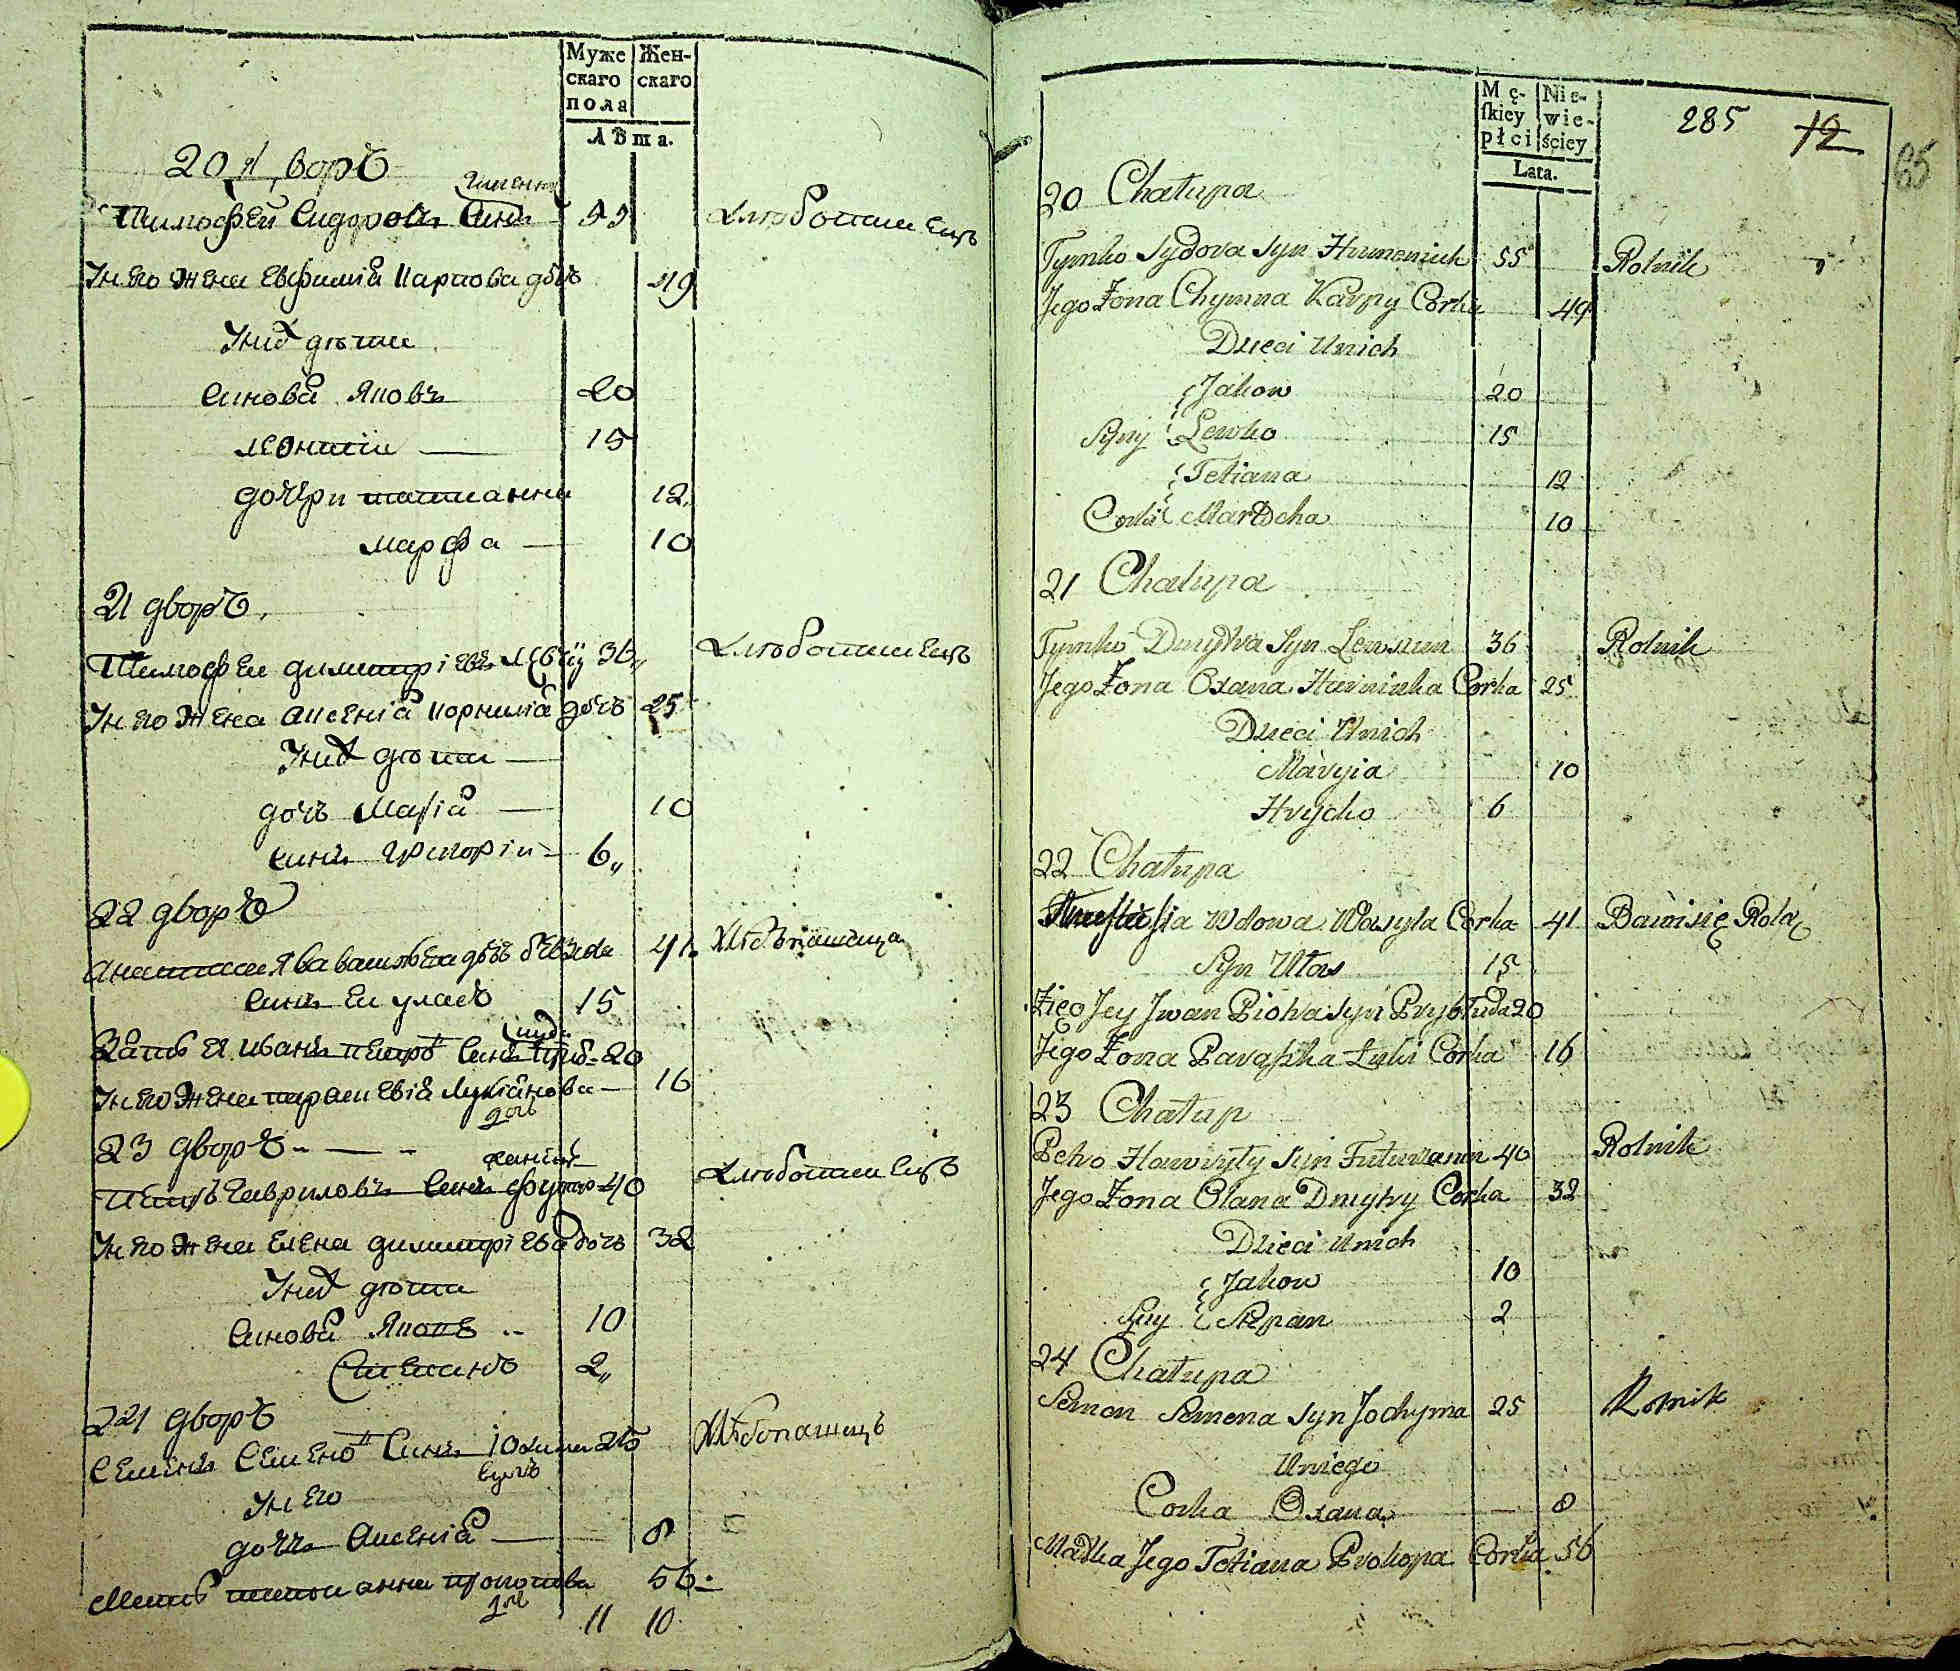 Муже
скаго
пола
Жен-
скаго
Лѣта.
20 дворъ
Тимофей Сидоровъ Синъ 55
Гмени
Хлѣбопашецъ
У него жена Евфимия Карпова дочъ 49
У нихъ дѣти
Синовя Яковъ 20
Леонтии 15
дочери татианна 12
марфа 10
21 дворъ
Тимофеи димитріевъ 36
Хлѣбопашецъ
У него жена Ксения Корнилія дочъ 25
У нихъ дѣти
дочъ Марія 10
Синъ Григоріи 6
22 дворъ
дочъ вдова 41
Хлѣбопашица
Синъ Еи уласъ 15
Зять Я иванъ петровъ Синъ 20
У него жена параскевія Лукіянова 16
дочъ
23 дворъ
Петръ Гавриловъ Синъ футор 40
Хлѣбопашецъ
У него жена Елена димитріева дочъ 32
У нихъ дѣти
Синовя Яковъ 10
Степанъ 2
24 дворъ
Семенъ Семеновъ Синъ Юхима 25
Хлѣбопашецъ
У него
дочъ Ксения 8
Мать татианна прокопова 56
дочъ
11 10
Mę-
skiey
płci
Nie-
wie-
ściey
Lata.
285 12
85
20 Chałupa
Tymko Sydora Syn Humeniuk 55 Rolnik
Jego Żona Chymna Karpy Corka 49
Dzieci Unich
Jakow 20
Syny Lewko 15
Tetiana 12
Corki Martocha 10
21 Chałupa
Tymko Dmytra Syn 36 Rolnik
Jego Żona Oxana Corka 25
Dzieci Unich
Maryia 10
Hrycko 6
22 Chałupa
Wdowa Wasyla Corka 41 Bawisię Rolą
Syn Ułas 15
Zięc Jey Jwan Piotra Syn Prybłuda 20
Jego Żona Paraska Łuki Corka 16
23 Chałup
Petro Hawryły Syn 40 Rolnik
Jego Żona Olana Dmytry Corka 32
Dzieci Unich
Jakow 10
Syny Stepan 2
24 Chałupa
Semen Semena Syn Jochyma 25 Rolnik
Uniego
Corka Oxana 8
Matka Jego Tetiana Prokopa Corka 56